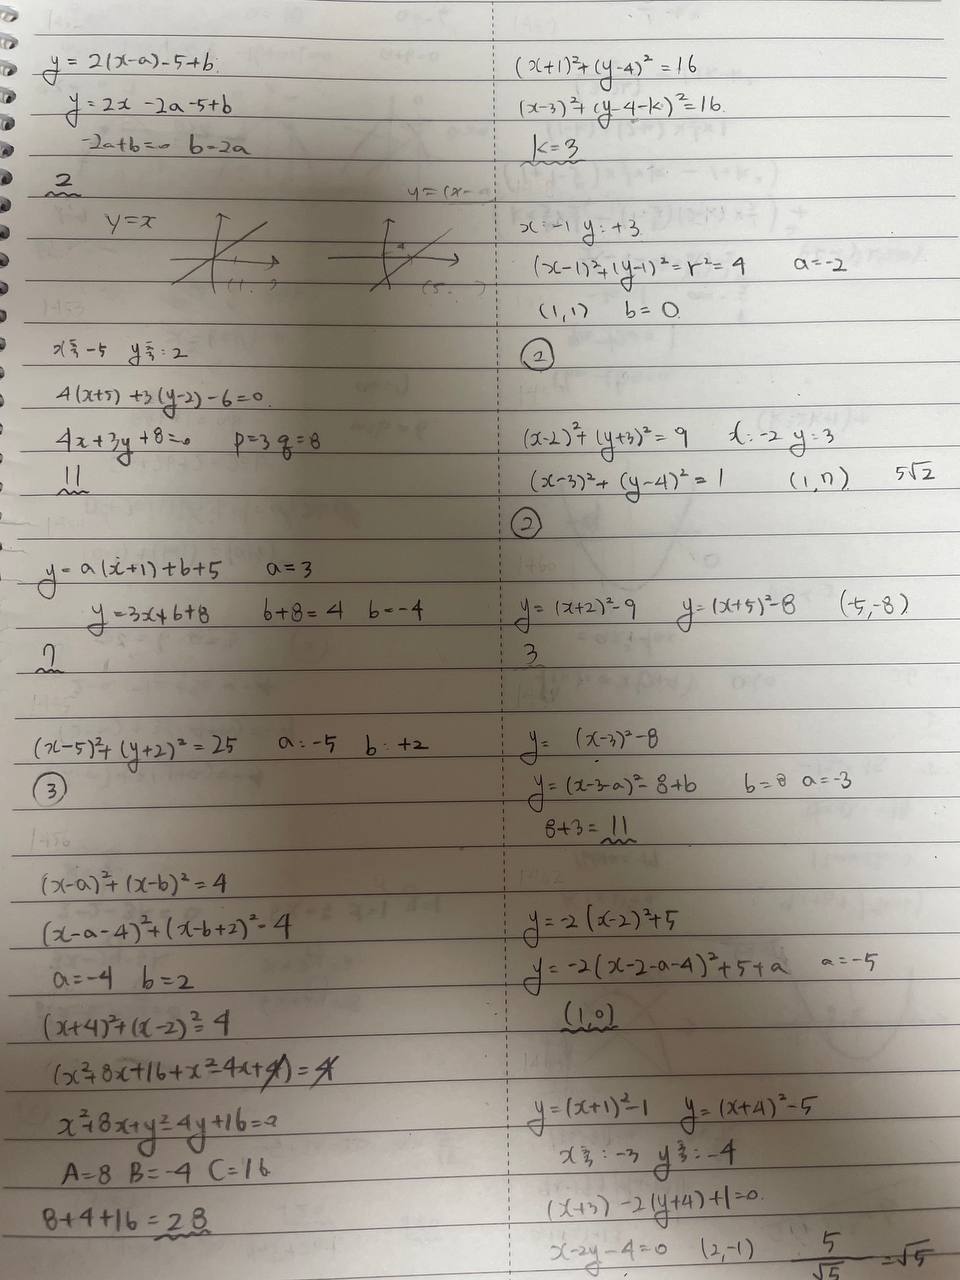 y = 2(x-a)-5+b
y = 2x -2a-5+b
-2a+b=0 b=2a
2
y=x
y=(x-
(1, )
(5, )
x축-5 y축:2
4(x+5)+3(y-2)-6=0
4x+3y+8=0 p=3 q=8
11
y=a(x+1)+b+5 a=3
y=3x+b+8 b+8=4 b=-4
7
(x-5)²+(y+2)²=25 a:-5 b:+2
③
(x-a)²+(x-b)²=4
(x-a-4)²+(x-b+2)²=4
a=-4 b=2
(x+4)²+(x-2)²=4
(x²+8x+16+x²-4x+4)=4
x²+8x+y²-4y+16=0
A=8 B=-4 C=16
8+4+16=28
(x+1)²+(y-4)²=16
(x-3)²+(y-4-k)²=16
k=3
x:-1 y:+3
(x-1)²+(y-1)²=r²=4 a=-2
(1,1) b=0
②
(x-2)²+(y+3)²=9 x:-2 y=3
(x-3)²+(y-4)²=1 (1,7) 5√2
②
y=(x+2)²-9 y=(x+5)²-8 (-5,-8)
3
y= (x-3)²-8
y=(x-3-a)²-8+b b=8 a=-3
8+3=11
y=-2(x-2)²+5
y=-2(x-2-a-4)²+5+a a=-5
(1,0)
y=(x+1)²-1 y=(x+4)²-5
x축:-3 y축:-4
(x+3)-2(y+4)+1=0
x-2y-4=0 (2,-1) 5/√5 =√5